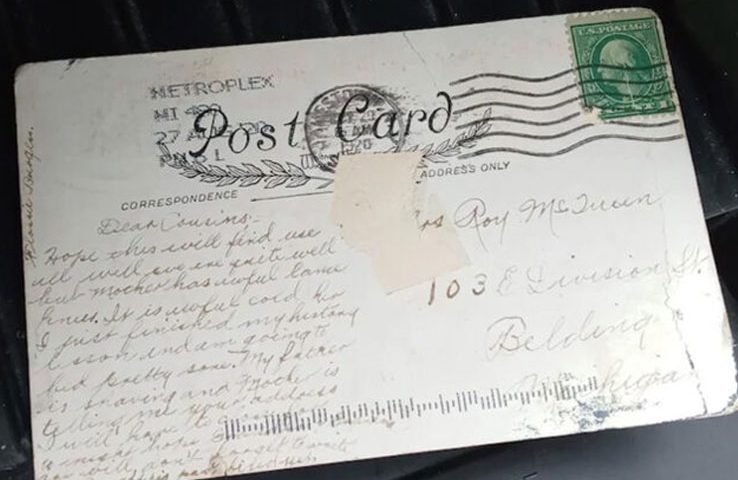 U.S. POSTAGE
METROPLEX
MI 480
27
PM L
1920
Post Card
CORRESPONDENCE
ADDRESS ONLY
Dear Cousins,-
Hope this will find use
all well we are quite well
but Mother has awful lame
knees. It is awful cord hear
I just finished my history
lesson and am going to
bed pretty soon. My father
is shaving and Mother is
telling me your address
I will have to
Roy McQueen
103 E Division St.
Belding
Michigan